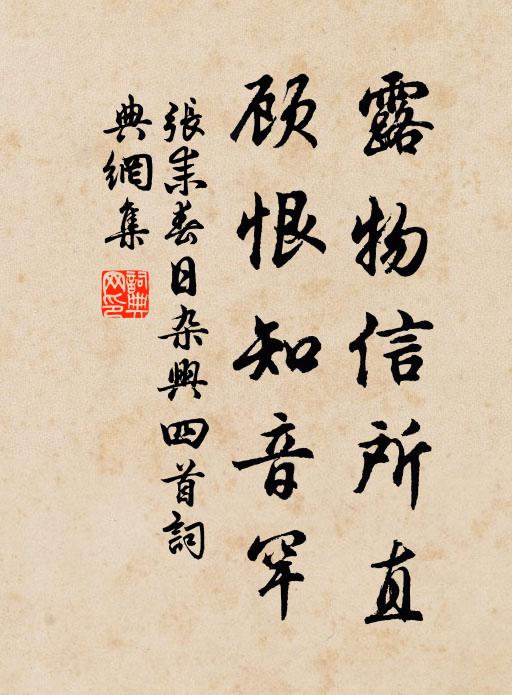 露物信所直
顾恨知音罕
張耒春日杂興四首詞
典網集
詞典
网印